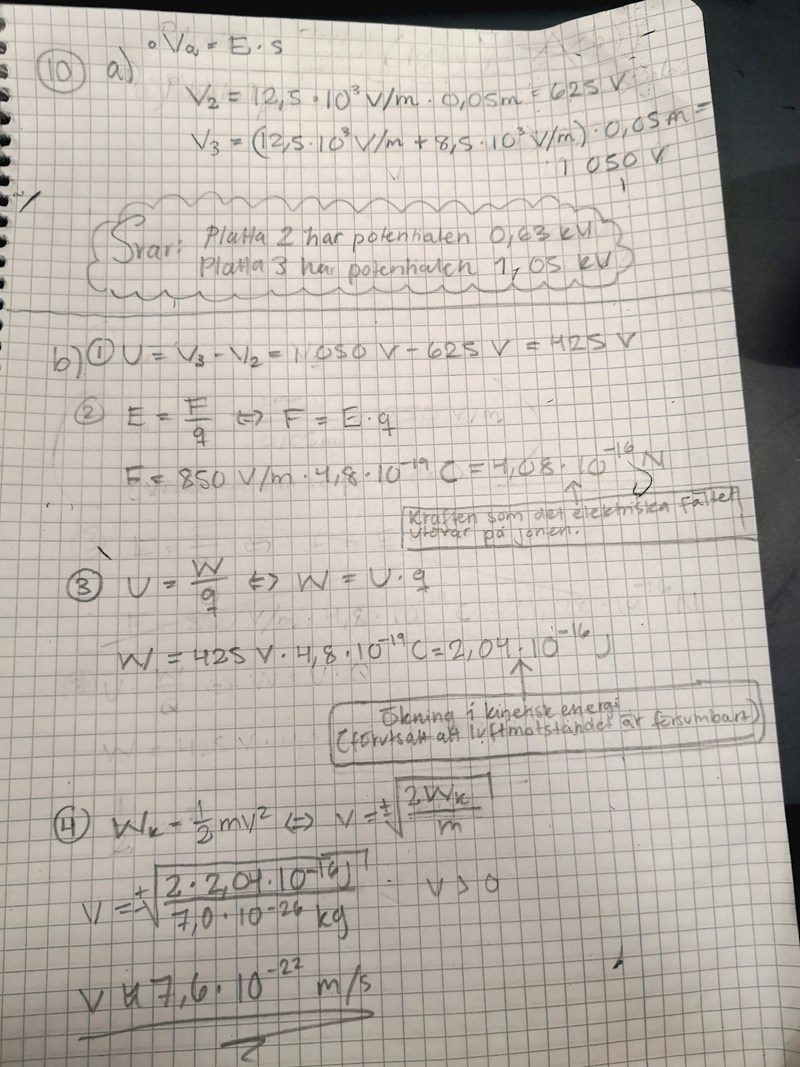 10 a) ∘ Va = E · s
V₂ = 12,5 · 10³ V/m · 0,05m = 625 V
V₃ = (12,5 · 10³ V/m + 8,5 · 10³ V/m) · 0,05m =
1 050 V
Svar: Platta 2 har potentialen 0,63 kV
Platta 3 har potentialen 1,05 kV
b) ① U = V₃ - V₂ = 1 050 V - 625 V = 425 V
② E = F/q ⇔ F = E · q
F = 850 V/m · 4,8 · 10⁻¹⁹ C = 4,08 · 10⁻¹⁶ N
Kraften som det elektriska fältet
utövar på jonen.
③ U = W/q ⇔ W = U · q
W = 425 V · 4,8 · 10⁻¹⁹ C = 2,04 · 10⁻¹⁶ J
Ökning i kinetisk energi
(förutsatt att luftmotståndet är försumbart)
④ Wₖ = ½ mv² ⇔ v = ±√(2Wₖ/m)
v = ±√(2 · 2,04 · 10⁻¹⁶ J / 7,0 · 10⁻²⁶ kg) v > 0
v ≈ 7,6 · 10⁻²² m/s